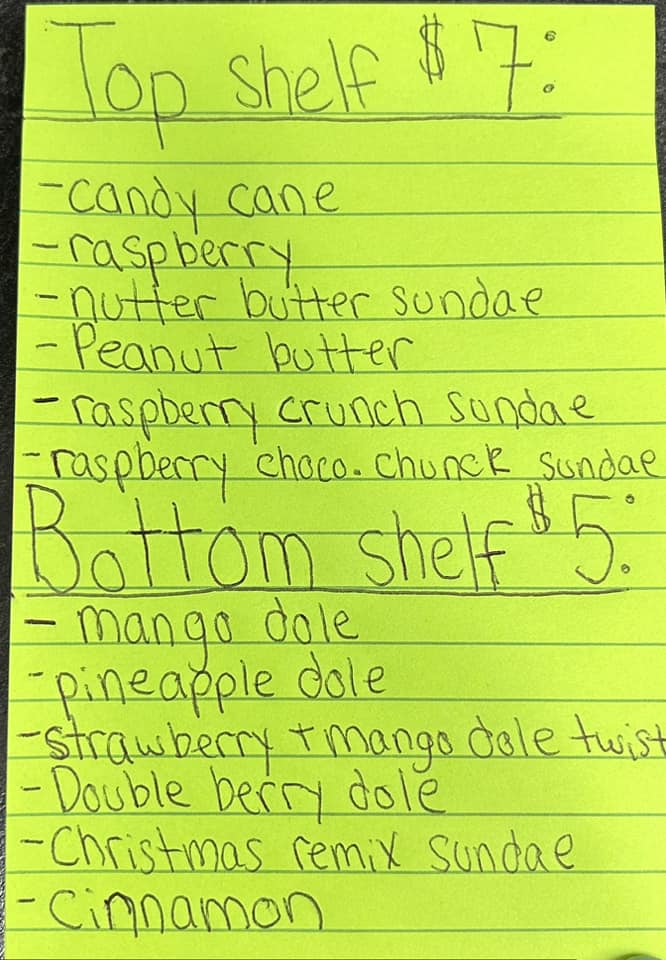 Top shelf $7:
-candy cane
-raspberry
-nutter butter sundae
-Peanut butter
-raspberry crunch sundae
-raspberry choco. chunck sundae
Bottom shelf $5:
- mango dole
-pineapple dole
-strawberry + mango dole twist
-Double berry dole
-Christmas remix sundae
-cinnamon